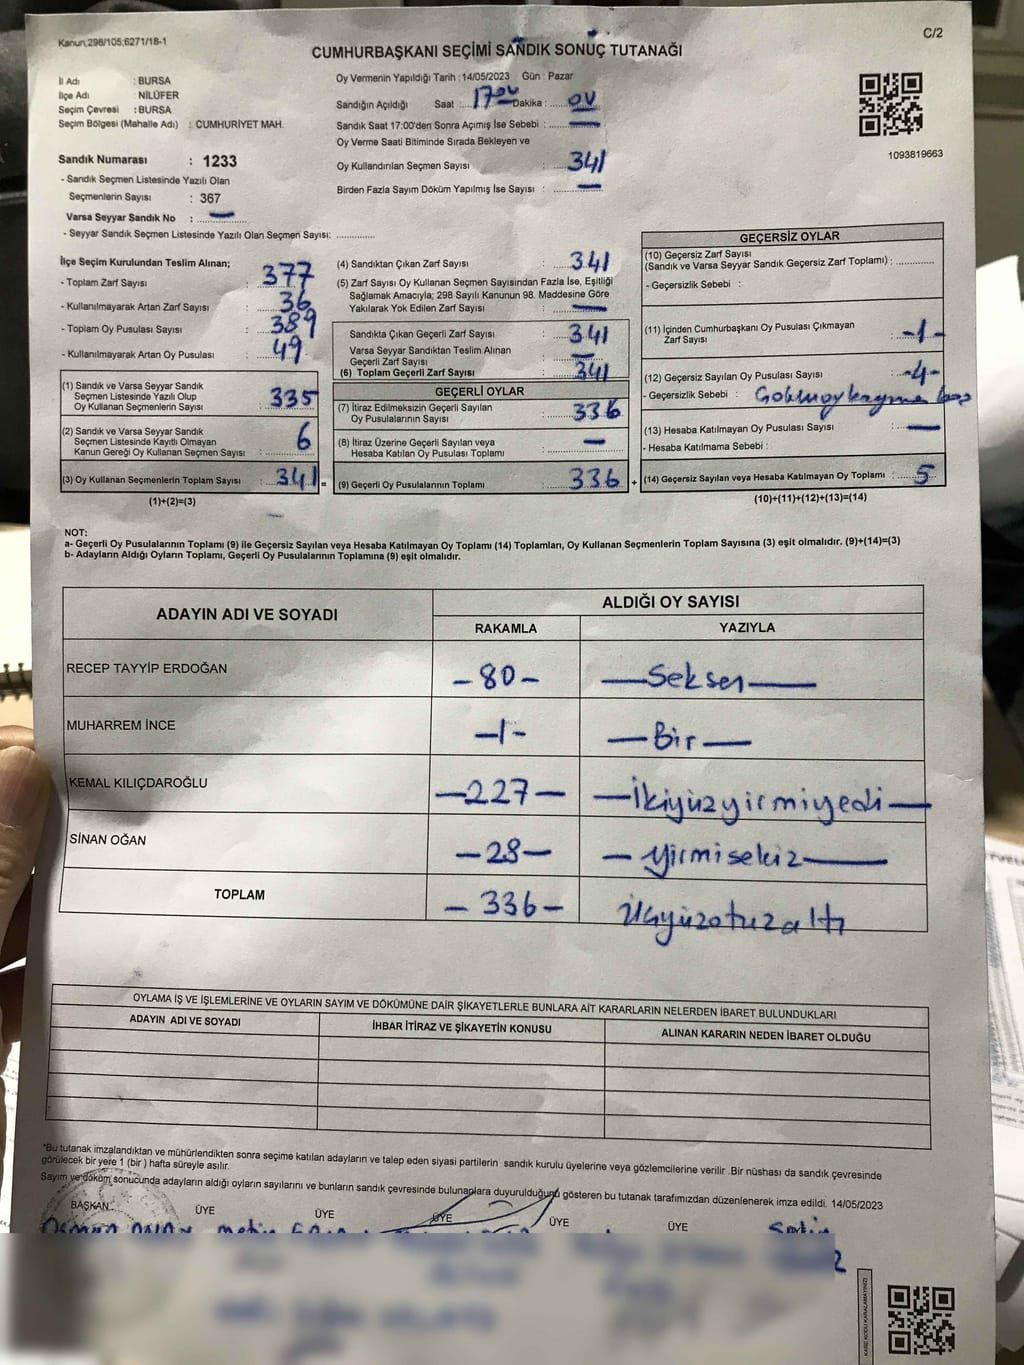 Kanun;298/105;6271/18-1
C/2
CUMHURBAŞKANI SEÇİMİ SANDIK SONUÇ TUTANAĞI
İl Adı : BURSA
İlçe Adı : NİLÜFER
Seçim Çevresi : BURSA
Seçim Bölgesi (Mahalle Adı) : CUMHURİYET MAH.
Oy Vermenin Yapıldığı Tarih : 14/05/2023 Gün : Pazar
Sandığın Açıldığı Saat : 17 00 Dakika : 00
Sandık Saat 17:00'den Sonra Açımış İse Sebebi : —
Oy Verme Saati Bitiminde Sırada Bekleyen ve
Oy Kullandırılan Seçmen Sayısı : 341
Birden Fazla Sayım Döküm Yapılmış İse Sayısı : —
1093819663
Sandık Numarası : 1233
- Sandık Seçmen Listesinde Yazılı Olan
Seçmenlerin Sayısı : 367
Varsa Seyyar Sandık No : —
- Seyyar Sandık Seçmen Listesinde Yazılı Olan Seçmen Sayısı: ..............
İlçe Seçim Kurulundan Teslim Alınan;
- Toplam Zarf Sayısı : 377
- Kullanılmayarak Artan Zarf Sayısı : 36
- Toplam Oy Pusulası Sayısı : 389
- Kullanılmayarak Artan Oy Pusulası : 49
(1) Sandık ve Varsa Seyyar Sandık
Seçmen Listesinde Yazılı Olup
Oy Kullanan Seçmenlerin Sayısı : 335
(2) Sandık ve Varsa Seyyar Sandık
Seçmen Listesinde Kayıtlı Olmayan
Kanun Gereği Oy Kullanan Seçmen Sayısı : 6
(3) Oy Kullanan Seçmenlerin Toplam Sayısı : 341 =
(1)+(2)=(3)
(4) Sandıktan Çıkan Zarf Sayısı : 341
(5) Zarf Sayısı Oy Kullanan Seçmen Sayısından Fazla İse, Eşitliği
Sağlamak Amacıyla; 298 Sayılı Kanunun 98. Maddesine Göre
Yakılarak Yok Edilen Zarf Sayısı : —
Sandıkta Çıkan Geçerli Zarf Sayısı : 341
Varsa Seyyar Sandıktan Teslim Alınan
Geçerli Zarf Sayısı : —
(6) Toplam Geçerli Zarf Sayısı : 341
GEÇERLİ OYLAR
(7) İtiraz Edilmeksizin Geçerli Sayılan
Oy Pusulasının Sayısı : 336
(8) İtiraz Üzerine Geçerli Sayılan veya
Hesaba Katılan Oy Pusulası Toplamı : —
(9) Geçerli Oy Pusulalarının Toplamı : 336 +
GEÇERSİZ OYLAR
(10) Geçersiz Zarf Sayısı
(Sandık ve Varsa Seyyar Sandık Geçersiz Zarf Toplamı) : ..............
- Geçersizlik Sebebi :
(11) İçinden Cumhurbaşkanı Oy Pusulası Çıkmayan
Zarf Sayısı : -1-
(12) Geçersiz Sayılan Oy Pusulası Sayısı : -4-
- Geçersizlik Sebebi :
(13) Hesaba Katılmayan Oy Pusulası Sayısı : —
- Hesaba Katılmama Sebebi :
(14) Geçersiz Sayılan veya Hesaba Katılmayan Oy Toplamı : 5
(10)+(11)+(12)+(13)=(14)
NOT:
a- Geçerli Oy Pusulalarının Toplamı (9) ile Geçersiz Sayılan veya Hesaba Katılmayan Oy Toplamı (14) Toplamları, Oy Kullanan Seçmenlerin Toplam Sayısına (3) eşit olmalıdır. (9)+(14)=(3)
b- Adayların Aldığı Oyların Toplamı, Geçerli Oy Pusulalarının Toplamına (9) eşit olmalıdır.
ADAYIN ADI VE SOYADI
ALDIĞI OY SAYISI
RAKAMLA YAZIYLA
RECEP TAYYİP ERDOĞAN -80- —Seksen—
MUHARREM İNCE -1- —Bir—
KEMAL KILIÇDAROĞLU -227- —İkiyüzyirmiyedi—
SİNAN OĞAN -28- —yirmisekiz—
TOPLAM -336- üçyüzotuzaltı
OYLAMA İŞ VE İŞLEMLERİNE VE OYLARIN SAYIM VE DÖKÜMÜNE DAİR ŞİKAYETLERLE BUNLARA AİT KARARLARIN NELERDEN İBARET BULUNDUKLARI
ADAYIN ADI VE SOYADI İHBAR İTİRAZ VE ŞİKAYETİN KONUSU ALINAN KARARIN NEDEN İBARET OLDUĞU
*Bu tutanak imzalandıktan ve mühürlendikten sonra seçime katılan adayların ve talep eden siyasi partilerin sandık kurulu üyelerine veya gözlemcilerine verilir .Bir nüshası da sandık çevresinde
görülecek bir yere 1 (bir ) hafta süreyle asılır.
Sayım ve döküm sonucunda adayların aldığı oyların sayılarını ve bunların sandık çevresinde bulunanlara duyurulduğunu gösteren bu tutanak tarafımızdan düzenlenerek imza edildi. 14/05/2023
BAŞKAN ÜYE ÜYE ÜYE ÜYE ÜYE